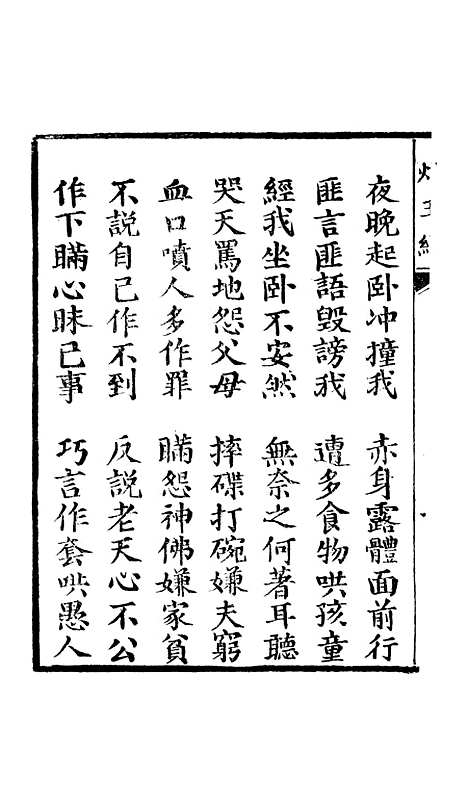 灶王經
夜晚起卧冲撞我 赤身露體面前行
匪言匪語毀謗我 遭多食物哄孩童
經我坐卧不安然 無奈之何著耳聽
哭天罵地怨父母 摔碟打碗嫌夫窮
血口噴人多作罪 瞞怨神佛嫌家貧
不説自己作不到 反説老天心不公
作下瞞心昧己事 巧言作套哄愚人